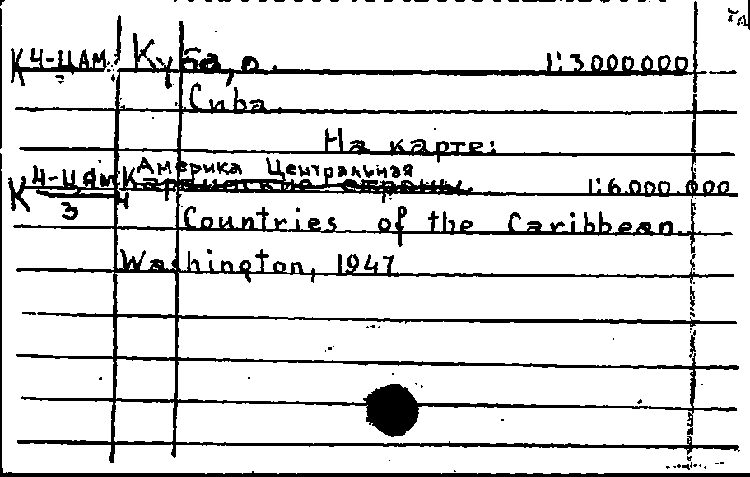 К 4-ЦАМ Куба, о. 1:3000000
Cuba.
На карте:
Америка Центральная
К 4-ЦАМ Карибские страны. 1:6.000.000
3 4
Countries of the Caribbean
Washington, 1947